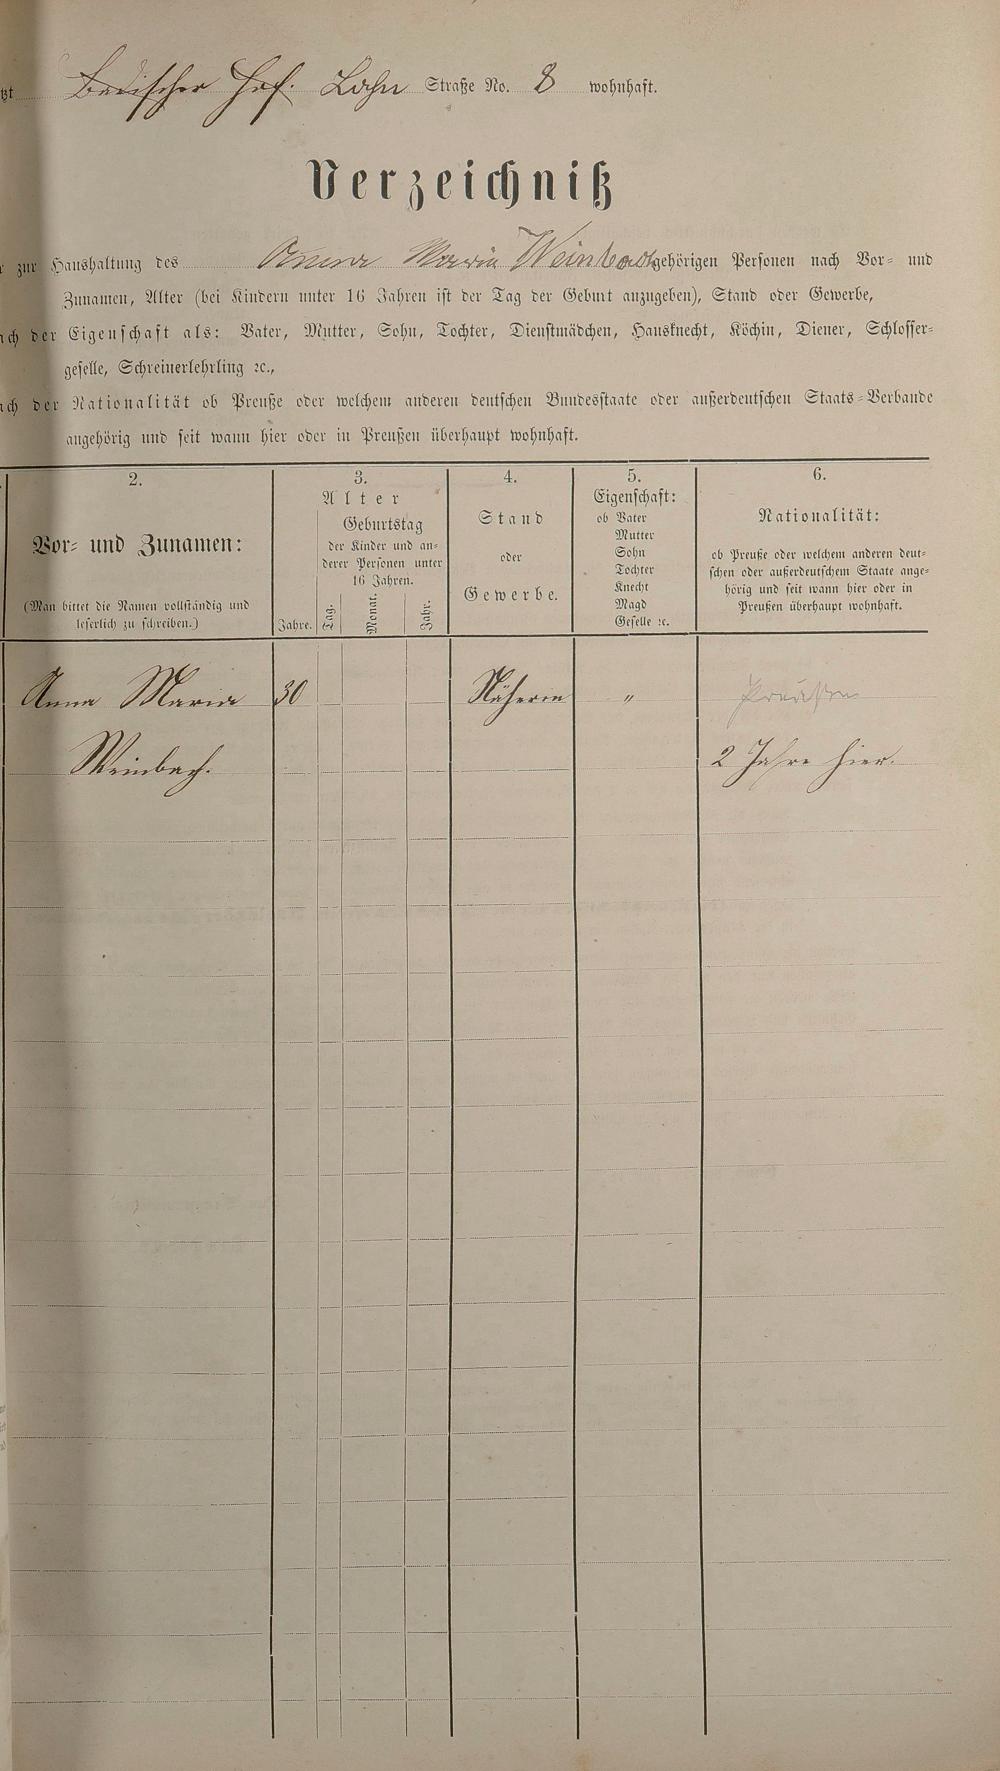 tzt Badischer Hof. Lahn Straße No. 8 wohnhaft.
Verzeichniß
r zur Haushaltung des Anna Maria Weinbach gehörigen Personen nach Vor- und
Zunamen, Alter (bei Kindern unter 16 Jahren ist der Tag der Geburt anzugeben), Stand oder Gewerbe,
ach der Eigenschaft als: Vater, Mutter, Sohn, Tochter, Dienstmädchen, Hausknecht, Köchin, Diener, Schlosser-
geselle, Schreinerlehrling ꝛc.,
ach der Nationalität ob Preuße oder welchem anderen deutschen Bundesstaate oder außerdeutschen Staats-Verbande
angehörig und seit wann hier oder in Preußen überhaupt wohnhaft.
2.
Vor- und Zunamen:
(Man bittet die Namen vollständig und
leserlich zu schreiben.)
3.
Alter
Geburtstag
der Kinder und an-
derer Personen unter
16 Jahren.
Jahre. Tag. Monat. Jahr.
4.
Stand
oder
Gewerbe.
5.
Eigenschaft:
ob Vater
Mutter
Sohn
Tochter
Knecht
Magd
Geselle ꝛc.
6.
Nationalität:
ob Preuße oder welchem anderen deut-
schen oder außerdeutschem Staate ange-
hörig und seit wann hier oder in
Preußen überhaupt wohnhaft.
Anna Maria 30 Näherin " Preußen
Weinbach. 2 Jahre hier.